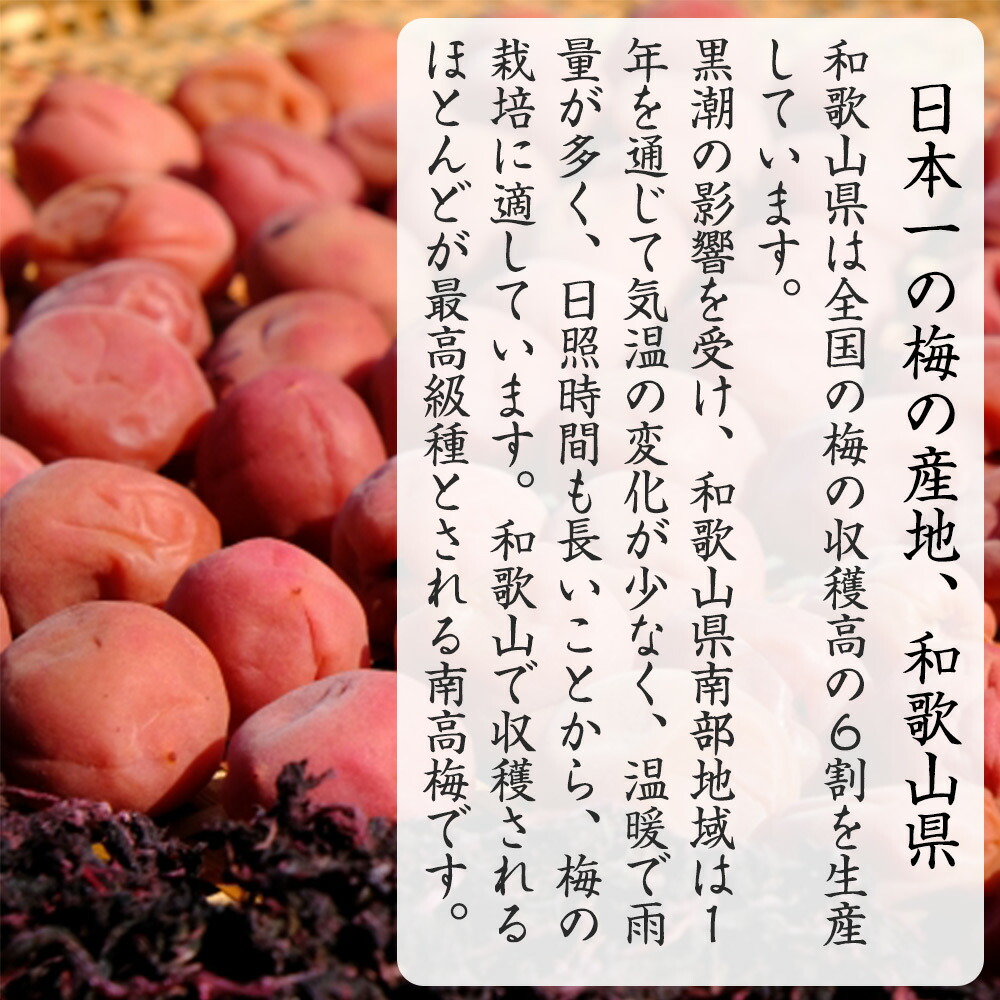 日本一の梅の産地、和歌山県
和歌山県は全国の梅の収穫高の6割を生産
しています。
黒潮の影響を受け、和歌山県南部地域は1
年を通じて気温の変化が少なく、温暖で雨
量が多く、日照時間も長いことから、梅の
栽培に適しています。和歌山で収穫される
ほとんどが最高級種とされる南高梅です。